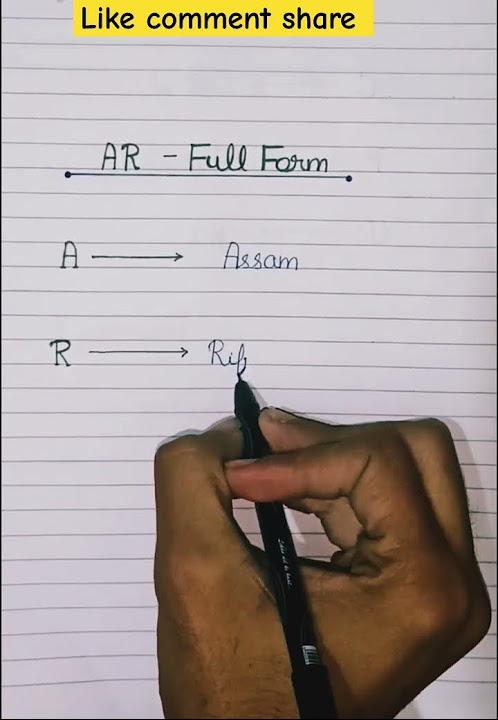 Like comment share
AR - Full Form
A → Assam
R → Rif